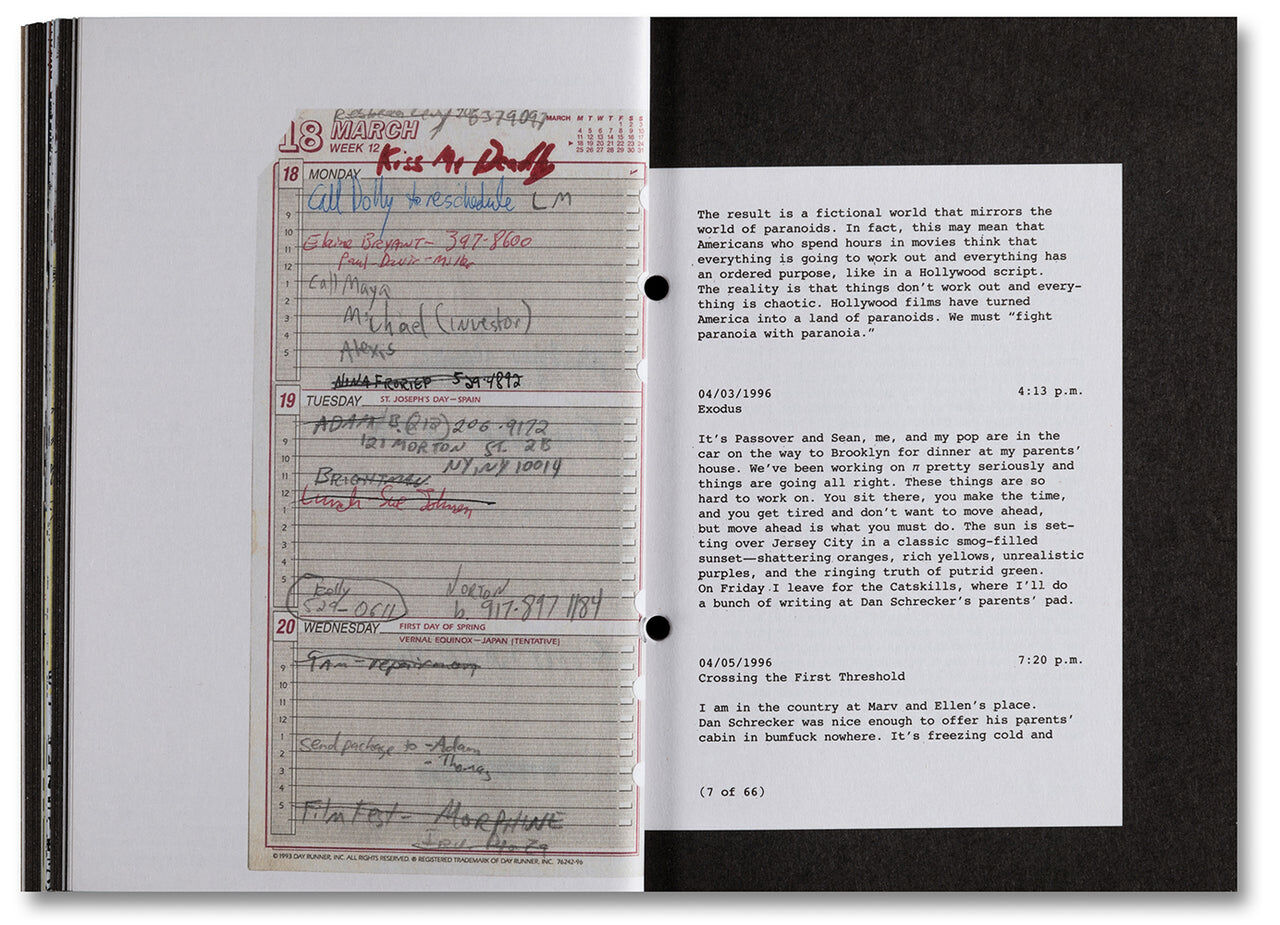 6379097
18 MARCH
WEEK 12
MARCH M T W T F S S
1 2 3
4 5 6 7 8 9 10
11 12 13 14 15 16 17
18 19 20 21 22 23 24
25 26 27 28 29 30 31
Kiss Me Deadly
18 MONDAY
Call Dolly to reschedule LM
9
10
Elaine Bryant - 397-8600
11
Paul - Davis - Miller
12
Call Maya
1
2
Michael (investor)
3
4
Alexis
5
NINA FRORIEP 529-4892
19 TUESDAY ST. JOSEPH'S DAY—SPAIN
ADAM B. (212) 206-9172
9
121 MORTON ST. 2B
10
NY, NY 10014
11
BRIGHTMAN
12
Lunch Sue Johnsen
1
2
3
4
5
Kelly NORTON
529-0611 b. 917-897 1184
20 WEDNESDAY FIRST DAY OF SPRING
VERNAL EQUINOX—JAPAN (TENTATIVE)
9 9am - repairman
10
11
12
1
send package to - Adam
2
- Thomas
3
4
5
Film Fest - MORPHINE
© 1993 DAY RUNNER, INC. ALL RIGHTS RESERVED. ® REGISTERED TRADEMARK OF DAY RUNNER, INC. 76242-96
The result is a fictional world that mirrors the
world of paranoids. In fact, this may mean that
Americans who spend hours in movies think that
everything is going to work out and everything has
an ordered purpose, like in a Hollywood script.
The reality is that things don't work out and every-
thing is chaotic. Hollywood films have turned
America into a land of paranoids. We must “fight
paranoia with paranoia.”
04/03/1996 4:13 p.m.
Exodus
It's Passover and Sean, me, and my pop are in the
car on the way to Brooklyn for dinner at my parents'
house. We've been working on π pretty seriously and
things are going all right. These things are so
hard to work on. You sit there, you make the time,
and you get tired and don't want to move ahead,
but move ahead is what you must do. The sun is set-
ting over Jersey City in a classic smog-filled
sunset—shattering oranges, rich yellows, unrealistic
purples, and the ringing truth of putrid green.
On Friday I leave for the Catskills, where I'll do
a bunch of writing at Dan Schrecker's parents' pad.
04/05/1996 7:20 p.m.
Crossing the First Threshold
I am in the country at Marv and Ellen's place.
Dan Schrecker was nice enough to offer his parents'
cabin in bumfuck nowhere. It's freezing cold and
(7 of 66)